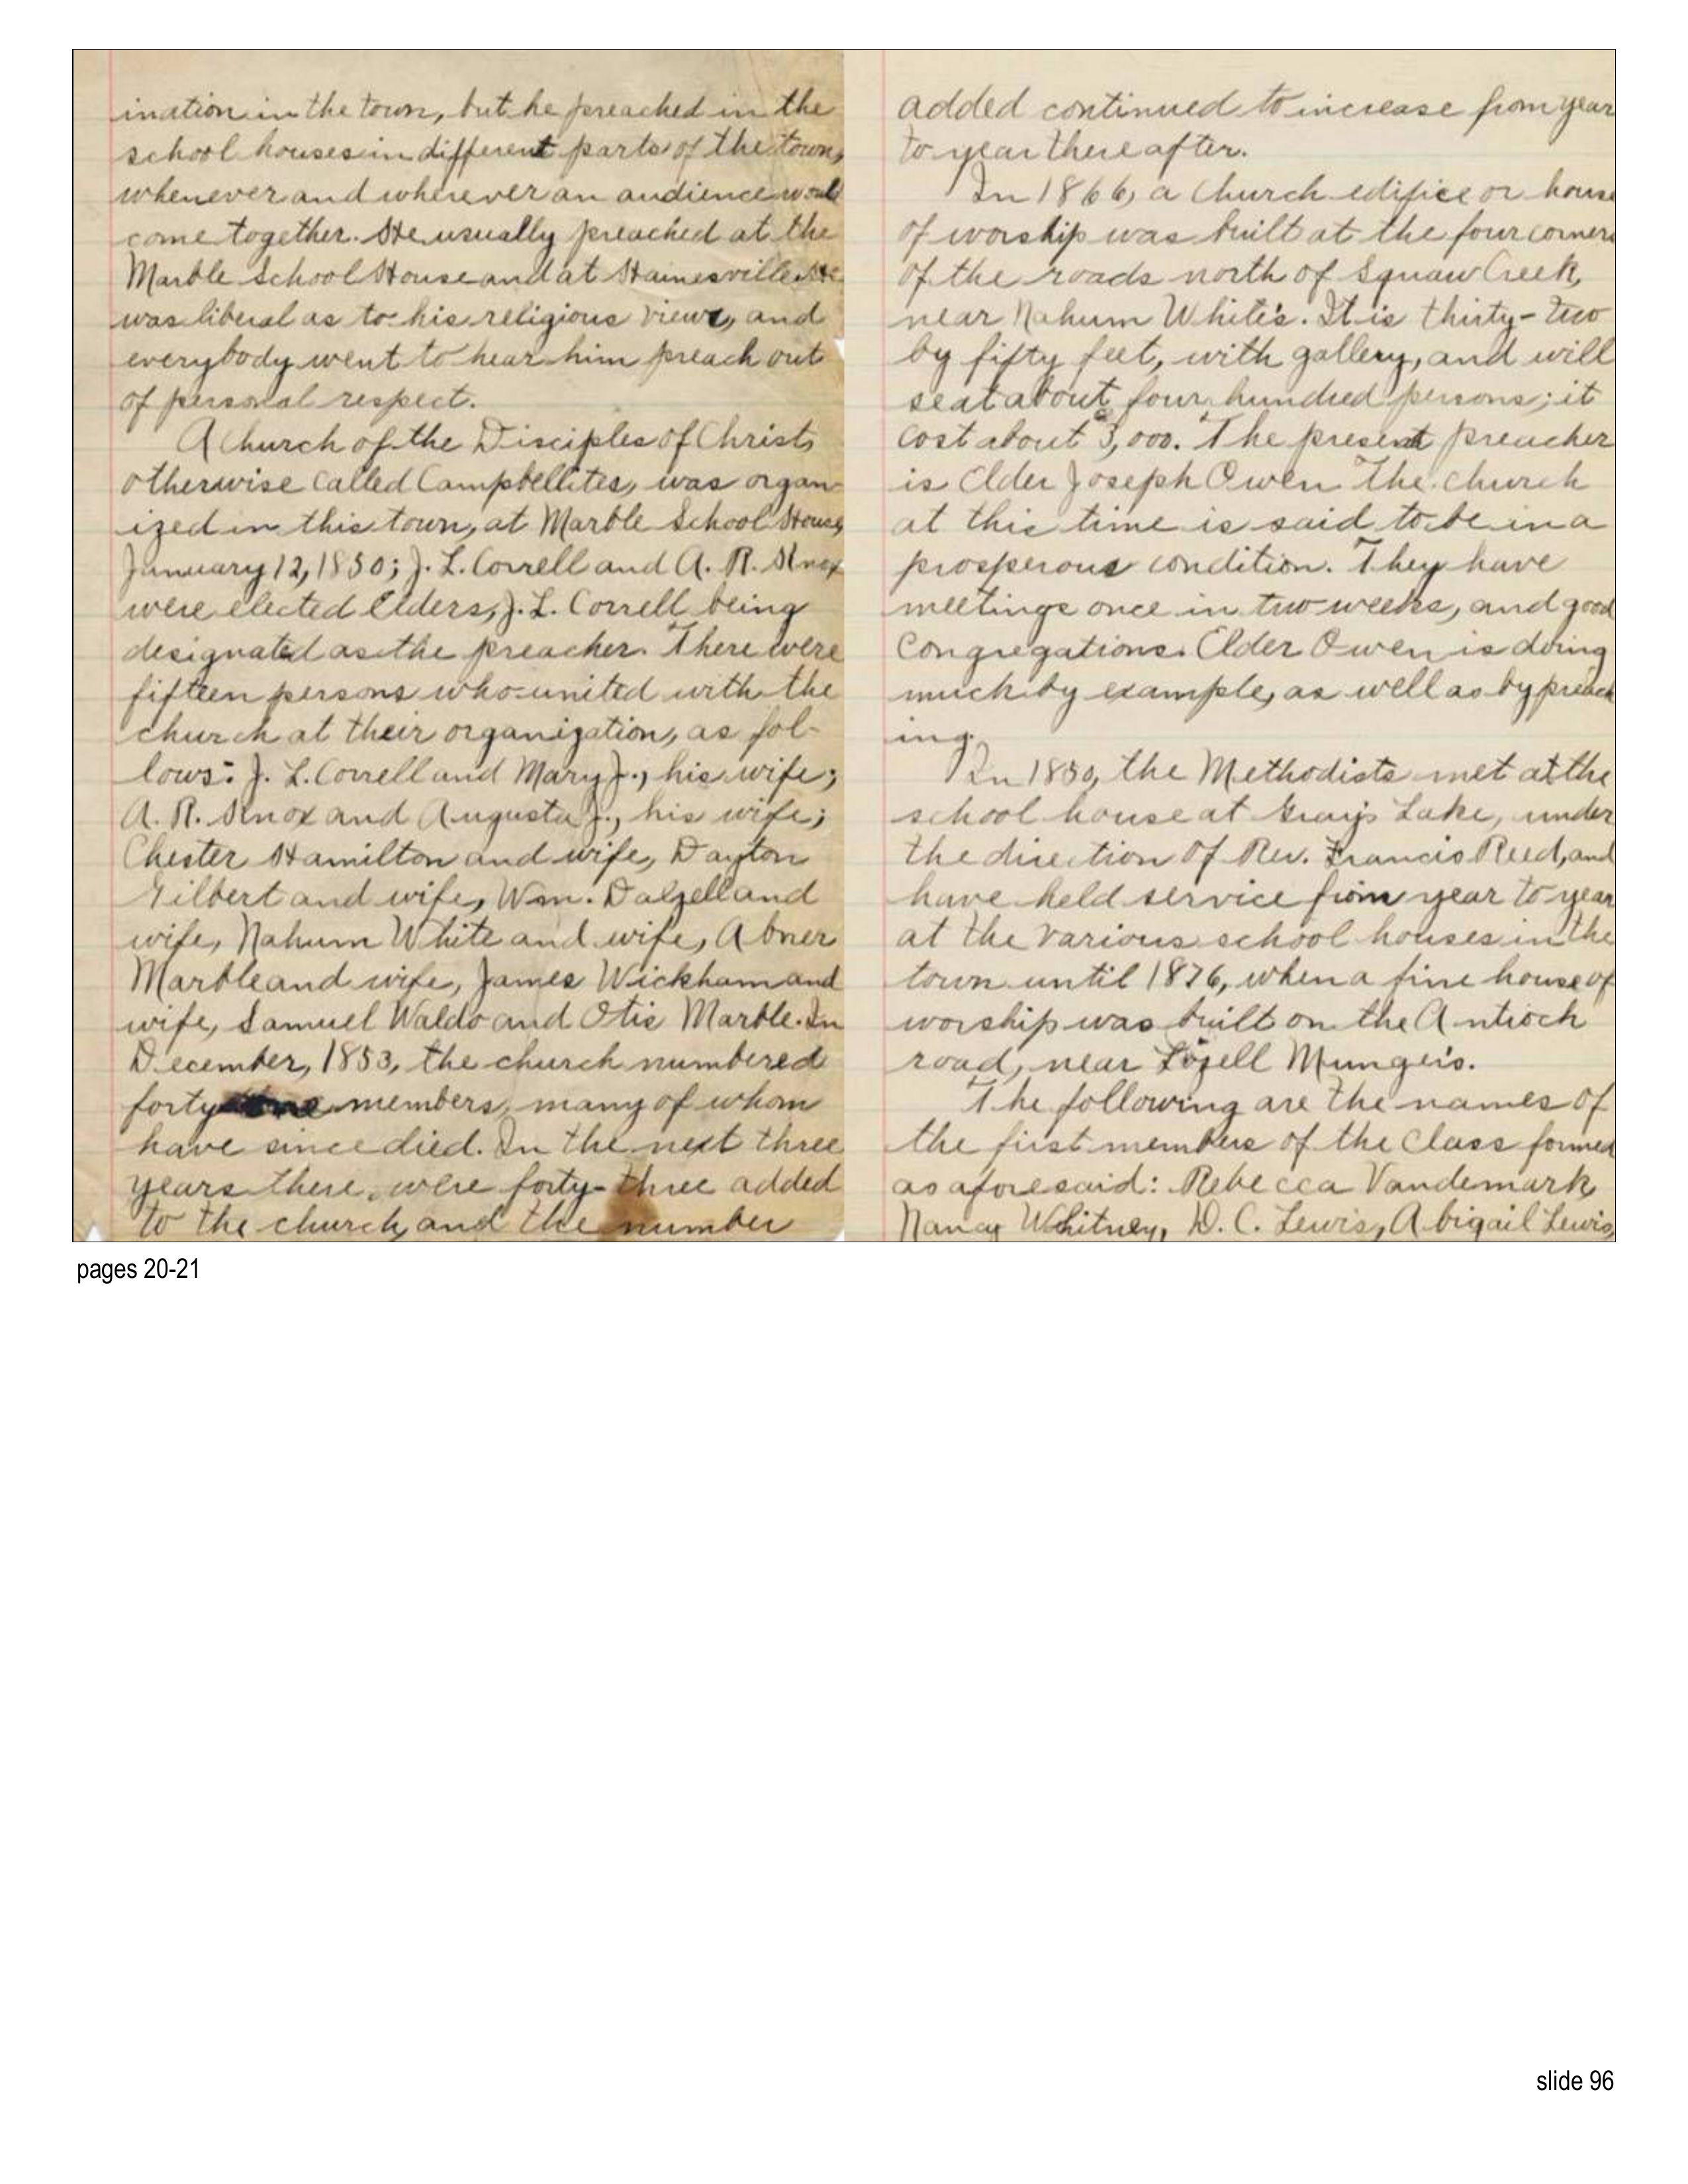 ination in the town, but he preached in the
school houses in different parts of the town,
whenever and wherever an audience would
come together. He usually preached at the
Marble School House and at Hainesville. He
was liberal as to his religious views, and
everybody went to hear him preach out
of personal respect.
A Church of the Disciples of Christ,
otherwise called Campbellites, was organ-
ized in this town, at Marble School House,
January 12, 1850; J. L. Correll and A. R. Knox
were elected Elders, J. L. Correll being
designated as the preacher. There were
fifteen persons who united with the
church at their organization, as fol-
lows: J. L. Correll and Mary J., his wife;
A. R. Knox and Augusta J., his wife;
Chester Hamilton and wife, Dayton
Gilbert and wife, Wm. Dalzell and
wife, Nahum White and wife, Abner
Marble and wife, James Wickham and
wife, Samuel Waldo and Otis Marble. In
December, 1853, the church numbered
forty members, many of whom
have since died. In the next three
years there were forty-three added
to the church, and the number
added continued to increase from year
to year thereafter.
In 1866, a Church edifice or house
of worship was built at the four corners
of the roads north of Squaw Creek,
near Nahum White's. It is thirty-two
by fifty feet, with gallery, and will
seat about four hundred persons; it
cost about $3,000. The present preacher
is Elder Joseph Owen. The church
at this time is said to be in a
prosperous condition. They have
meetings once in two weeks, and good
Congregations. Elder Owen is doing
much by example, as well as by preach
ing.
In 1850, the Methodists met at the
school house at Gray's Lake, under
the direction of Rev. Francis Reed, and
have held service from year to year
at the various school houses in the
town until 1876, when a fine house of
worship was built on the Antioch
road, near Lozell Munger's.
The following are the names of
the first members of the Class formed
as aforesaid: Rebecca Vandemark,
Nancy Whitney, D. C. Lewis, Abigail Lewis,
pages 20-21
slide 96